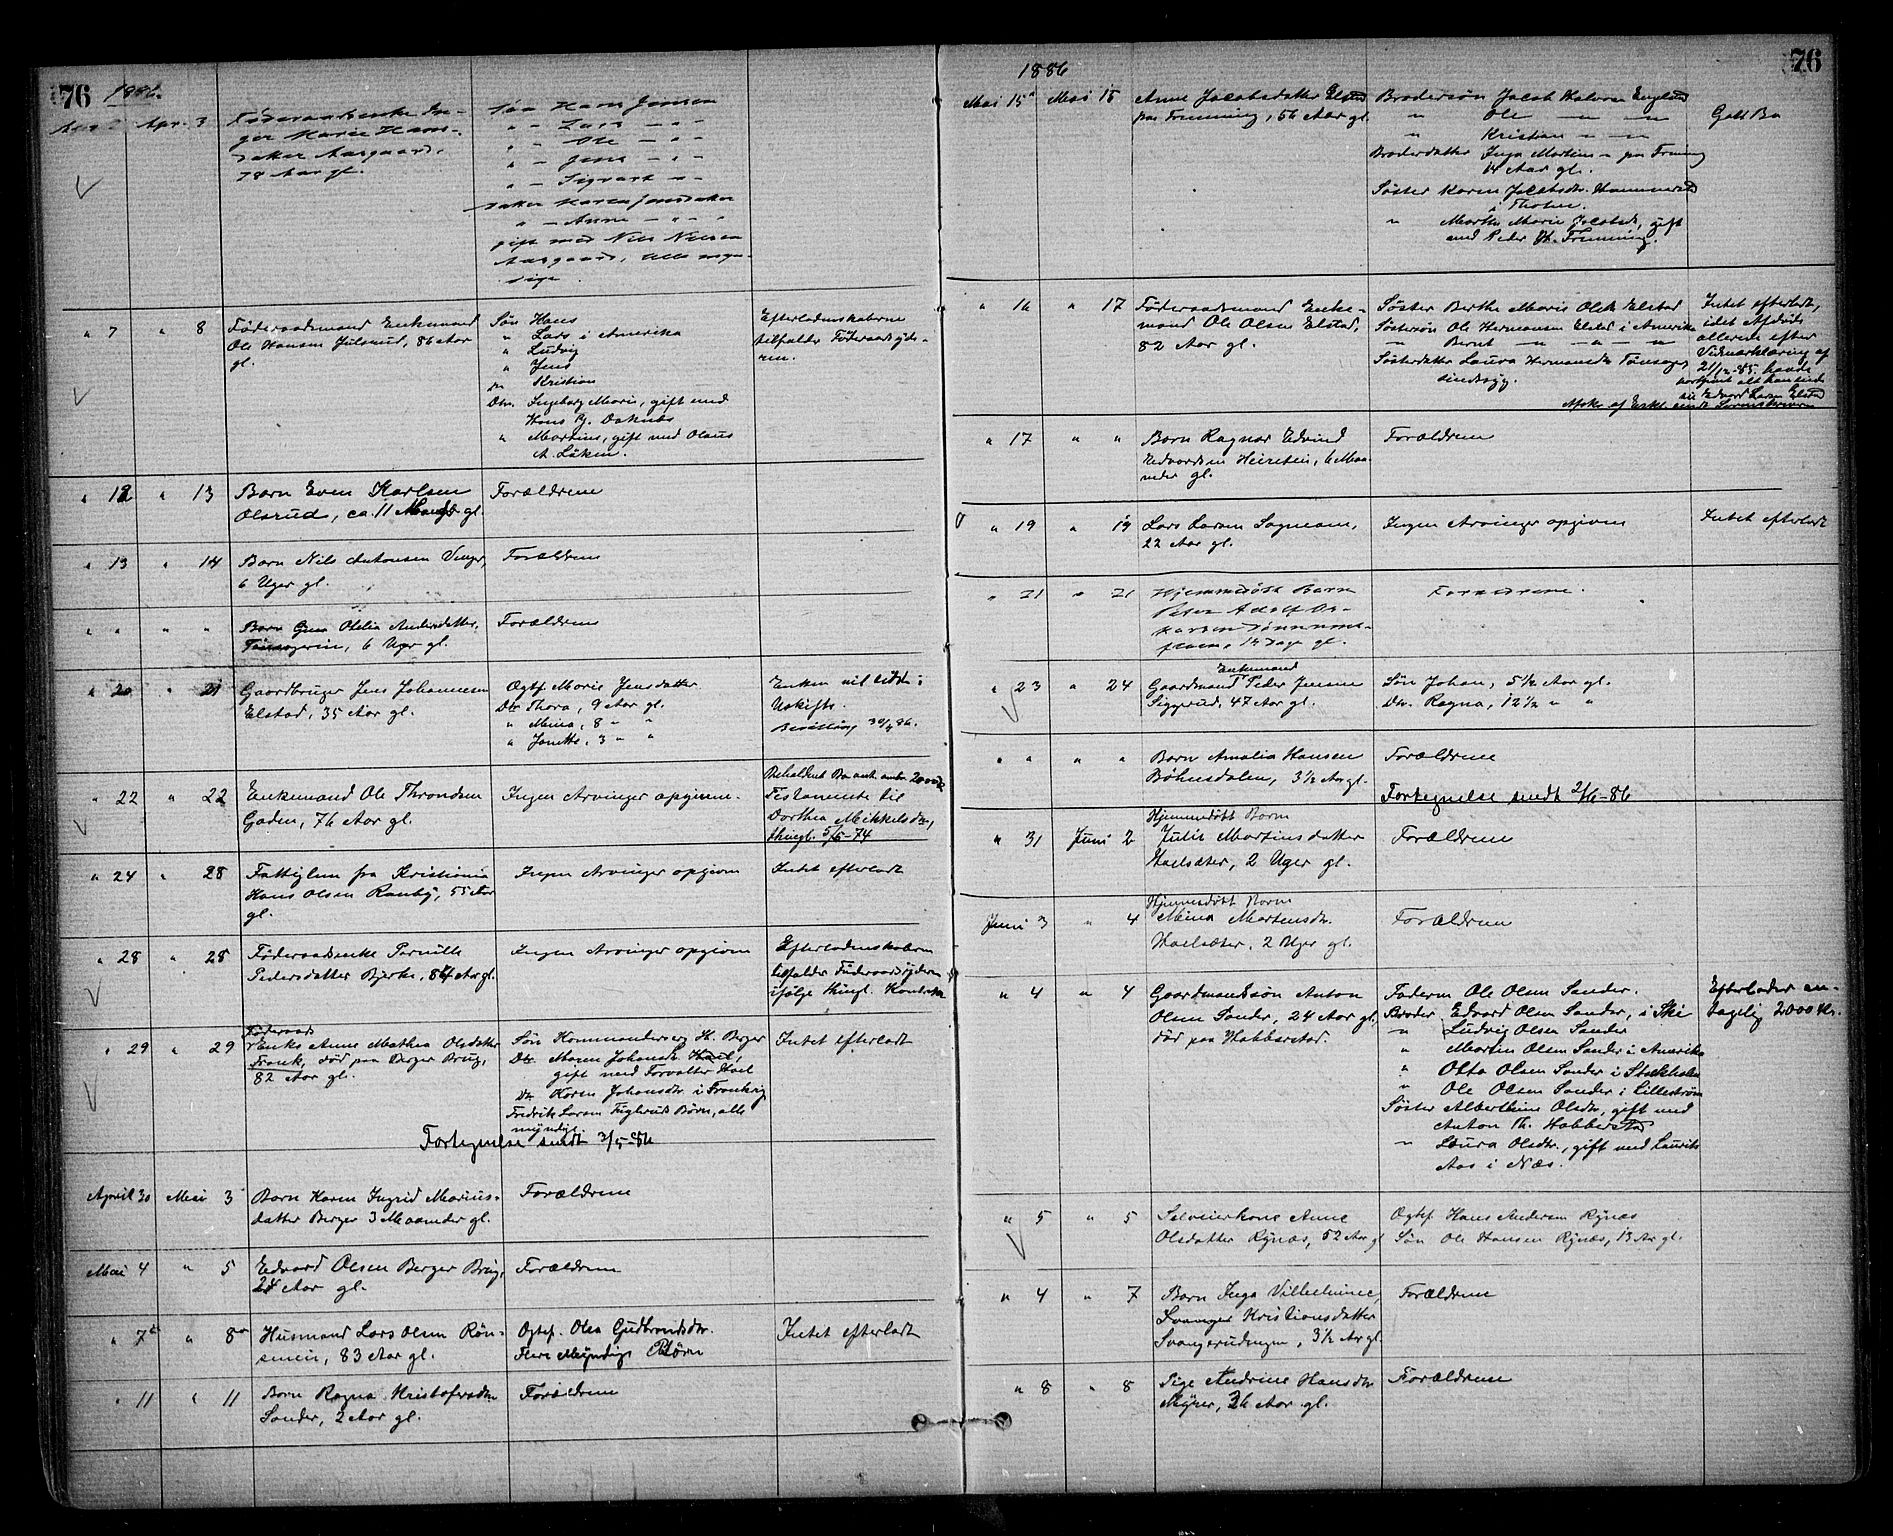 76 1886.
Apr. 2 Apr. 3 Føderaadsenke In-
ger Marie Hans-
datter Aargaard,
78 Aar gl.
Søn Hans Jensen
" - Lars - " -
" - Ole - " -
" - Jens - " -
" - Sigvart - " -
Datter Karen Jensdatter
" - Anne - " - "
gift med Nils Nilsen
Aargaard, Alle myn-
dige.
" 7 " 8 Føderaadsmand Enkemand
Ole Hansen Julsrud, 86 Aar
gl.
Søn Hans
" Lars i Amerika
" Ludvig
" Jens
" Kristian
Dtr. Ingeborg Marie, gift med
Hans P. Daknes
" Martine, gift med Olaus
A. Løken.
Efterladenskaberne
tilfalder Føderaadsyde-
ren.
" 12 " 13 Barn Even Karlsen
Olsrud, ca. 11 Maan. gl.
Forældrene
" 13 " 14 Barn Nils Antonsen Vinger,
6 Uger gl.
Forældrene
" " " " Barn Othilia Andersdatter,
Tønsagerin, 6 Uger gl.
Forældrene
" 20 " 21 Gaardbruger Jens Johannesen
Elstad, 35 Aar gl.
Ogtf. Marie Jensdatter
Dtr. Thora, 9 Aar gl.
" Mina, 8 " "
" Janette, 3 " "
Enken vil sidde i
Uskifte.
Bevilling 30/4 86.
" 22 " 22 Enkemand Ole Throndsen
Gaden, 76 Aar gl.
Ingen Arvinger opgivne.
Beholdent Bo ant. omtr. 2000 Kr
Testamente til
Dorthea Mikkelsdtr,
thingl. 5/6-74
" 24 " 28 Fattiglem fra Kristiania
Hans Olsen Ranby, 55 Aar
gl.
Ingen Arvinger opgivne
Intet efterladt
" 28 " 28 Føderaadsenke Pernille
Pedersdatter Bjerke, 84 Aar gl.
Ingen Arvinger opgivne
Efterladenskaberne
tilfalder Føderaadsyderen
ifølge thingl. Kontrakt
" 29 " 29 Føderaads
Enke Anne Mathea Olsdatter
Frank, død paa Berger Brug,
82 Aar gl.
Søn Kommandersrg H. Berger
Dtr. Maren Johansdtr. Hoel,
gift med Forvalter Hoel
Dtr. Karen Johansdtr. i Frankrig
Fredrik Larsen Fuglerud Børn, alle
myndige.
Intet efterladt
Fortegnelse sendt 3/5-86
April 30 Mai 3 Barn Karen Ingrid Marius-
datter Berger 3 Maaneder gl.
Forældrene
Mai 4 " 5 Edvard Olsen Berger Brug,
24 Aar gl.
Forældrene
" 7 " 8 Husmand Lars Olsen Røn-
smein, 83 Aar gl.
Ogtef. Olea Gudbrandsdtr.
Flere Myndige Børn
Intet efterladt
" 11 " 11 Barn Ragna Kristofersdtr.
Sander, 2 Aar gl.
Forældrene
1886 76
Mai 15 Mai 15 Anne Jacobsdatter Elstad
paa Frenning, 56 Aar gl.
Brodersøn Jacob Halvorsen Englund
" Ole - " - " -
" Kristian - " - " -
Broderdatter Inga Martine - paa Frenning
14 Aar gl.
Søster Karen Jacobsdtr. Hammerstad
i Thoten.
" Marthe Marie Jacobsdtr, gift
med Peder Frenning.
Gott Bo
" 16 " 17 Føderaadsmand Enke-
mand Ole Olsen Elstad,
82 Aar gl.
Søster Berthe Marie Olsdtr. Elstad
Søstersøn Ole Hermansen Elstad i Amerika
" Bernt - " - " - " -
Søsterdatter Laura Hermansdtr Tønsager,
sindssyg.
Intet efterladt,
idet Afdøde
allerede efter
Vidnerklæring af
21/12-85 havde
bortgivet alt han eiede
til Edvard Larsen Elstad
Afskr. af Erkl. sendt Sorenskriveren
" 17 " " Barn Ragnar Edvind
Edvardsen Heirstein, 6 Maa-
neder gl.
Forældrene
" 19 " 19 Lars Larsen Sagmoen,
22 Aar gl.
Ingen Arvinger opgivne
Intet efterladt
" 21 " 21 Hjemmedøbt Barn
Peter Adolf Os-
karsen Tønnums-
, 14 Dage gl.
Forældrene.
" 23 " 24 Enkemand
Gaardmand Peder Jensen
Siggerud, 47 Aar gl.
Søn Johan, 5 1/2 Aar gl.
Dtr. Ragna, 12 1/2 " "
" " " " Barn Amalia Hansen
Bøhnsdalen, 3 1/2 Aar gl.
Forældrene
Fortegnelse sendt 2/6-86
" 31 Juni 2 Hjemmedøbt Barn
Julie Martinsdatter
Hoelsæter, 2 Uger gl.
Forældrene
Juni 3 " 4 Hjemmedøbt Barn
Mina Martensdtr.
Hoelsæter, 2 Uger gl.
Forældrene
" 4 " 4 Gaardmandssøn Anton
Olsen Sander, 24 Aar gl,
død paa Habberstad.
Faderen Ole Olsen Sander.
Broder Edvard Olsen Sander, i Ski
" Ludvig Olsen Sander
" Martin Olsen Sander i Amerika
" Otto Olsen Sander i Stockholm
" Ole Olsen Sander i Lillestrøm
Søster Albertine Olsdtr, gift med
Anton Th. Habberstad
" Laura Olsdtr., gift med Laurits
Aas i Næs.
Efterlader an-
tagelig 2000 Kr.
" 5 " 5 Selveierkone Anne
Olsdatter Rynæs, 52 Aar gl
Ogtef. Hans Andersen Rynæs
Søn Ole Hansen Rynæs, 13 Aar gl.
" 4 " 7 Barn Inga Vilhelmine
Kristiansdatter
Svangerudengen, 3 1/2 Aar gl.
Forældrene
" 8 " 8 Pige Andrine Hansdtr
Myrer, 26 Aar gl.
Forældrene